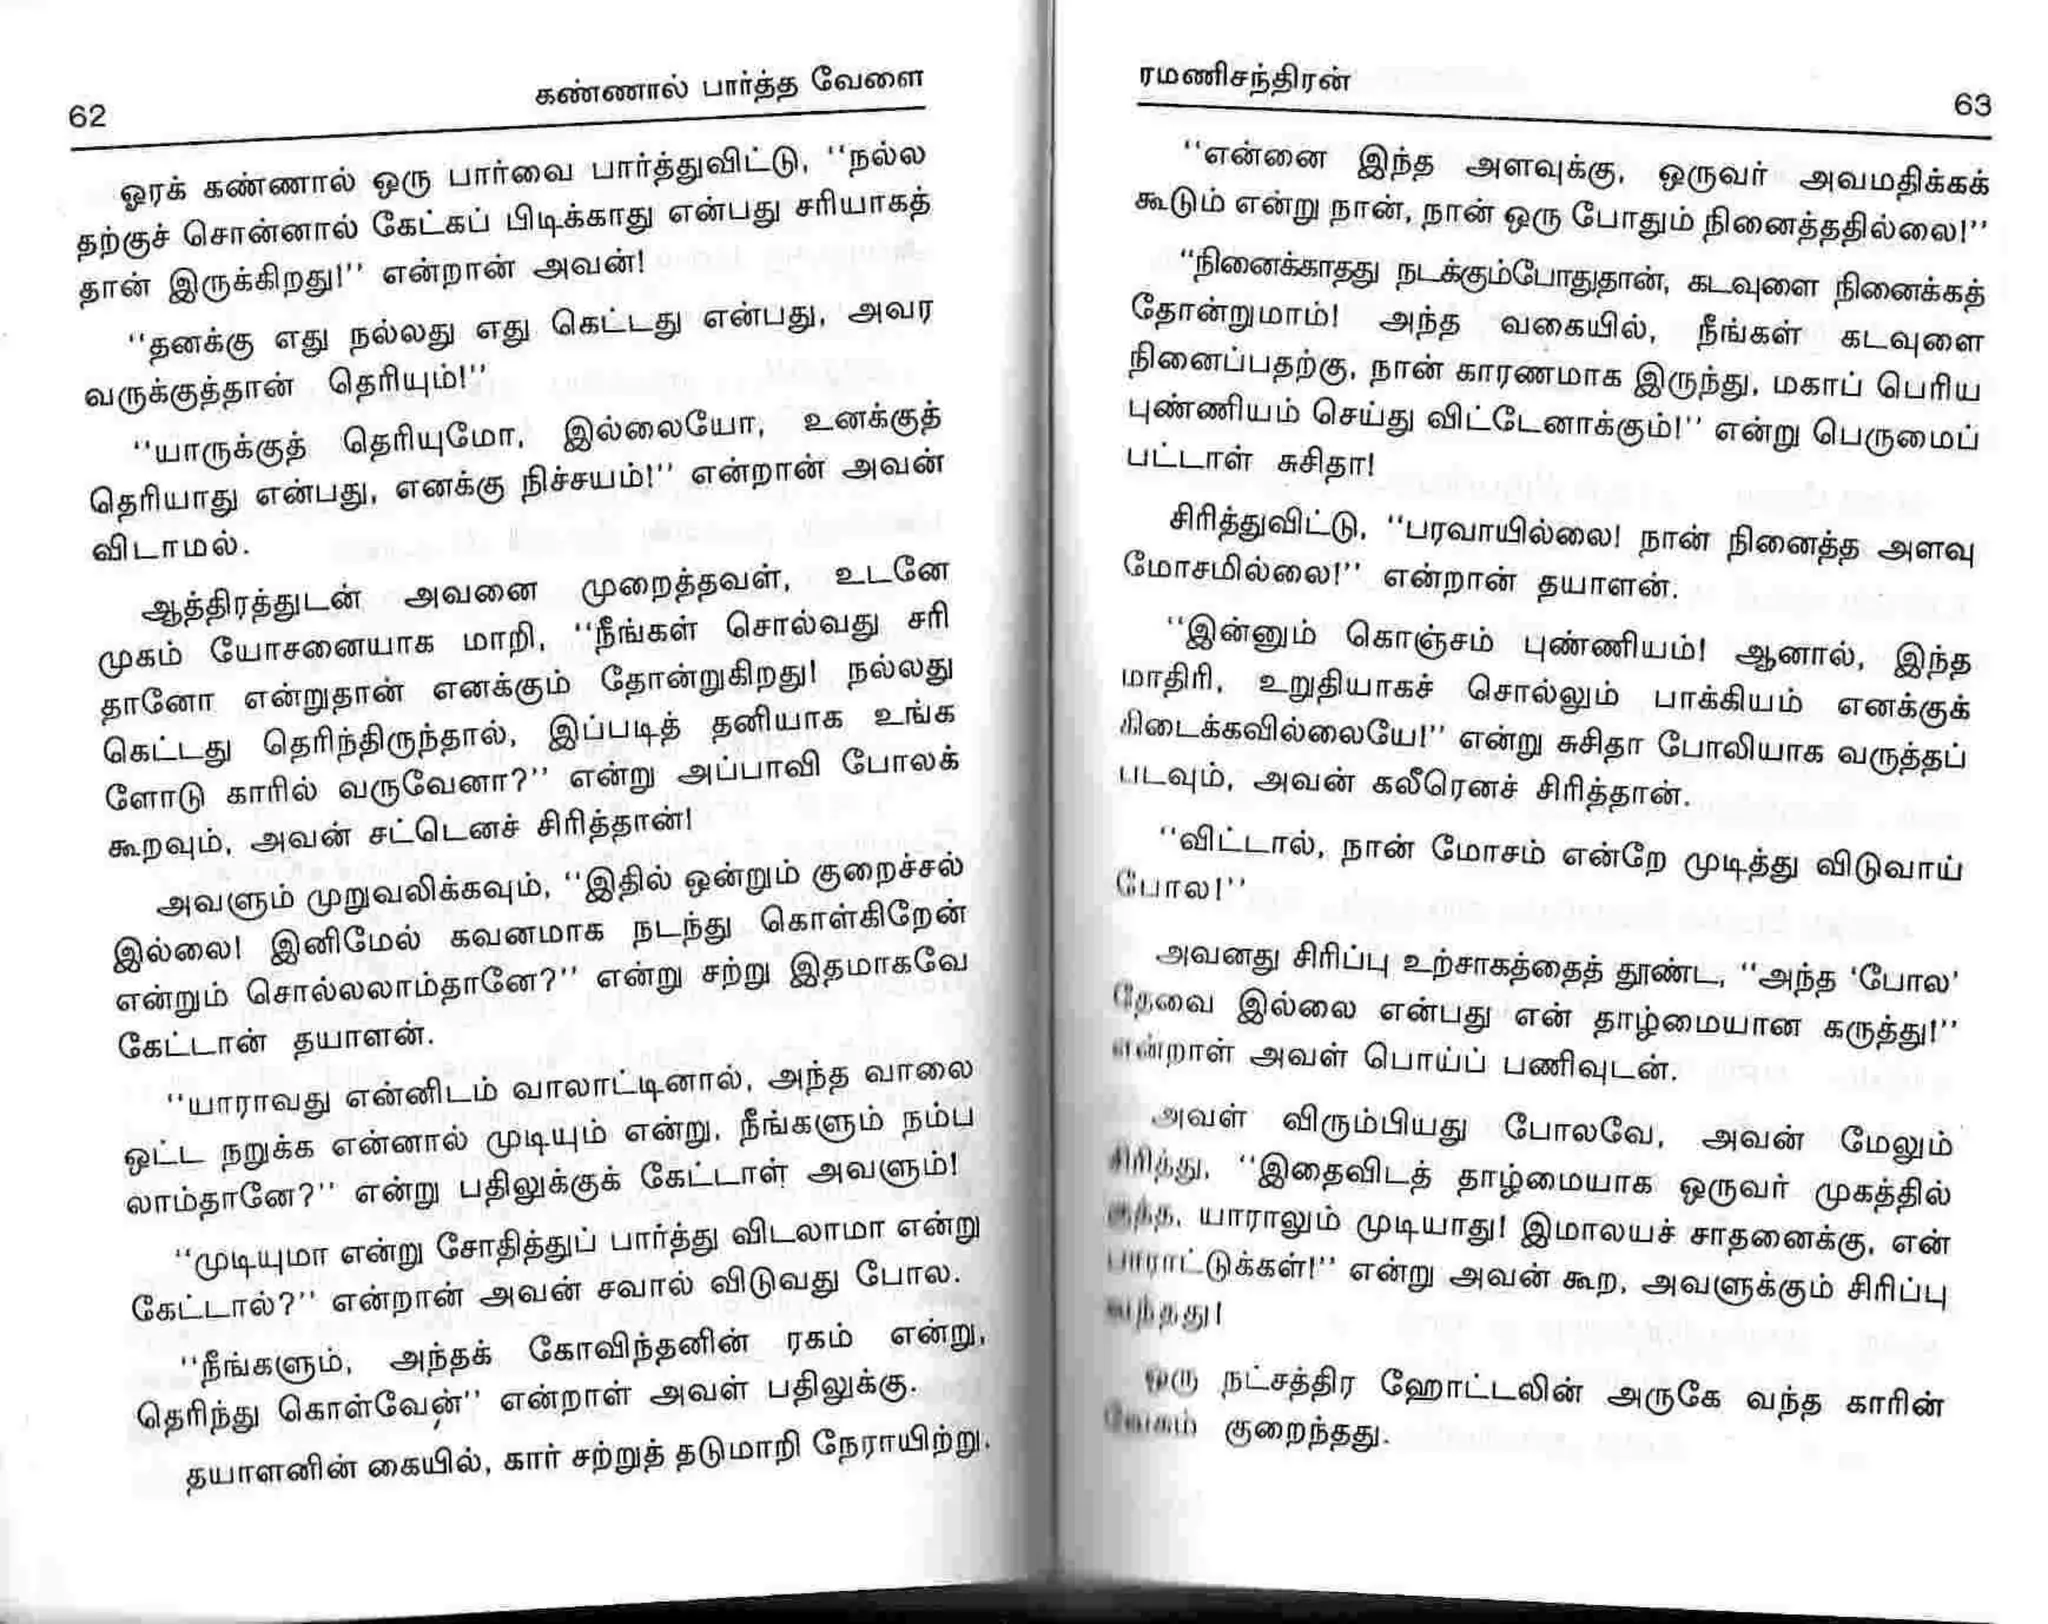 62
கண்ணால் பார்த்த வேளை
ஓரக் கண்ணால் ஒரு பார்வை பார்த்துவிட்டு, “நல்ல
தற்குச் சொன்னால் கேட்கப் பிடிக்காது என்பது சரியாகத்
தான் இருக்கிறது!” என்றான் அவன்!
“தனக்கு எது நல்லது எது கெட்டது என்பது, அவர
வருக்குத்தான் தெரியும்!”
“யாருக்குத் தெரியுமோ, இல்லையோ, உனக்குத்
தெரியாது என்பது, எனக்கு நிச்சயம்!” என்றான் அவன்
விடாமல்.
ஆத்திரத்துடன் அவனை முறைத்தவள், உடனே
முகம் யோசனையாக மாறி, “நீங்கள் சொல்வது சரி
தானோ என்றுதான் எனக்கும் தோன்றுகிறது! நல்லது
கெட்டது தெரிந்திருந்தால், இப்படித் தனியாக உங்க
ளோடு காரில் வருவேனா?” என்று அப்பாவி போலக்
கூறவும், அவன் சட்டெனச் சிரித்தான்!
அவளும் முறுவலிக்கவும், “இதில் ஒன்றும் குறைச்சல்
இல்லை! இனிமேல் கவனமாக நடந்து கொள்கிறேன்
என்றும் சொல்லலாம்தானே?” என்று சற்று இதமாகவே
கேட்டான் தயாளன்.
“யாராவது என்னிடம் வாலாட்டினால், அந்த வாலை
ஒட்ட நறுக்க என்னால் முடியும் என்று, நீங்களும் நம்ப
லாம்தானே?” என்று பதிலுக்குக் கேட்டாள் அவளும்!
“முடியுமா என்று சோதித்துப் பார்த்து விடலாமா என்று
கேட்டால்?” என்றான் அவன் சவால் விடுவது போல.
“நீங்களும், அந்தக் கோவிந்தனின் ரகம் என்று,
தெரிந்து கொள்வேன்” என்றாள் அவள் பதிலுக்கு.
தயாளனின் கையில், கார் சற்றுத் தடுமாறி நேராயிற்று.
ரமணிசந்திரன்
63
“என்னை இந்த அளவுக்கு, ஒருவர் அவமதிக்கக்
கூடும் என்று நான், நான் ஒரு போதும் நினைத்ததில்லை!”
“நினைக்காதது நடக்கும்போதுதான், கடவுளை நினைக்கத்
தோன்றுமாம்! அந்த வகையில், நீங்கள் கடவுளை
நினைப்பதற்கு, நான் காரணமாக இருந்து, மகாப் பெரிய
புண்ணியம் செய்து விட்டேனாக்கும்!” என்று பெருமைப்
பட்டாள் சுசிதா!
சிரித்துவிட்டு, “பரவாயில்லை! நான் நினைத்த அளவு
மோசமில்லை!” என்றான் தயாளன்.
“இன்னும் கொஞ்சம் புண்ணியம்! ஆனால், இந்த
மாதிரி, உறுதியாகச் சொல்லும் பாக்கியம் எனக்குக்
கிடைக்கவில்லையே!” என்று சுசிதா போலியாக வருத்தப்
படவும், அவன் கலீரெனச் சிரித்தான்.
“விட்டால், நான் மோசம் என்றே முடித்து விடுவாய்
போல!”
அவனது சிரிப்பு உற்சாகத்தைத் தூண்ட, “அந்த ‘போல’
தேவை இல்லை என்பது என் தாழ்மையான கருத்து!”
என்றாள் அவள் பொய்ப் பணிவுடன்.
அவள் விரும்பியது போலவே, அவன் மேலும்
சிரித்து, “இதைவிடத் தாழ்மையாக ஒருவர் முகத்தில்
குத்த, யாராலும் முடியாது! இமாலயச் சாதனைக்கு, என்
பாராட்டுக்கள்!” என்று அவன் கூற, அவளுக்கும் சிரிப்பு
வந்தது!
ஒரு நட்சத்திர ஹோட்டலின் அருகே வந்த காரின்
வேகம் குறைந்தது.